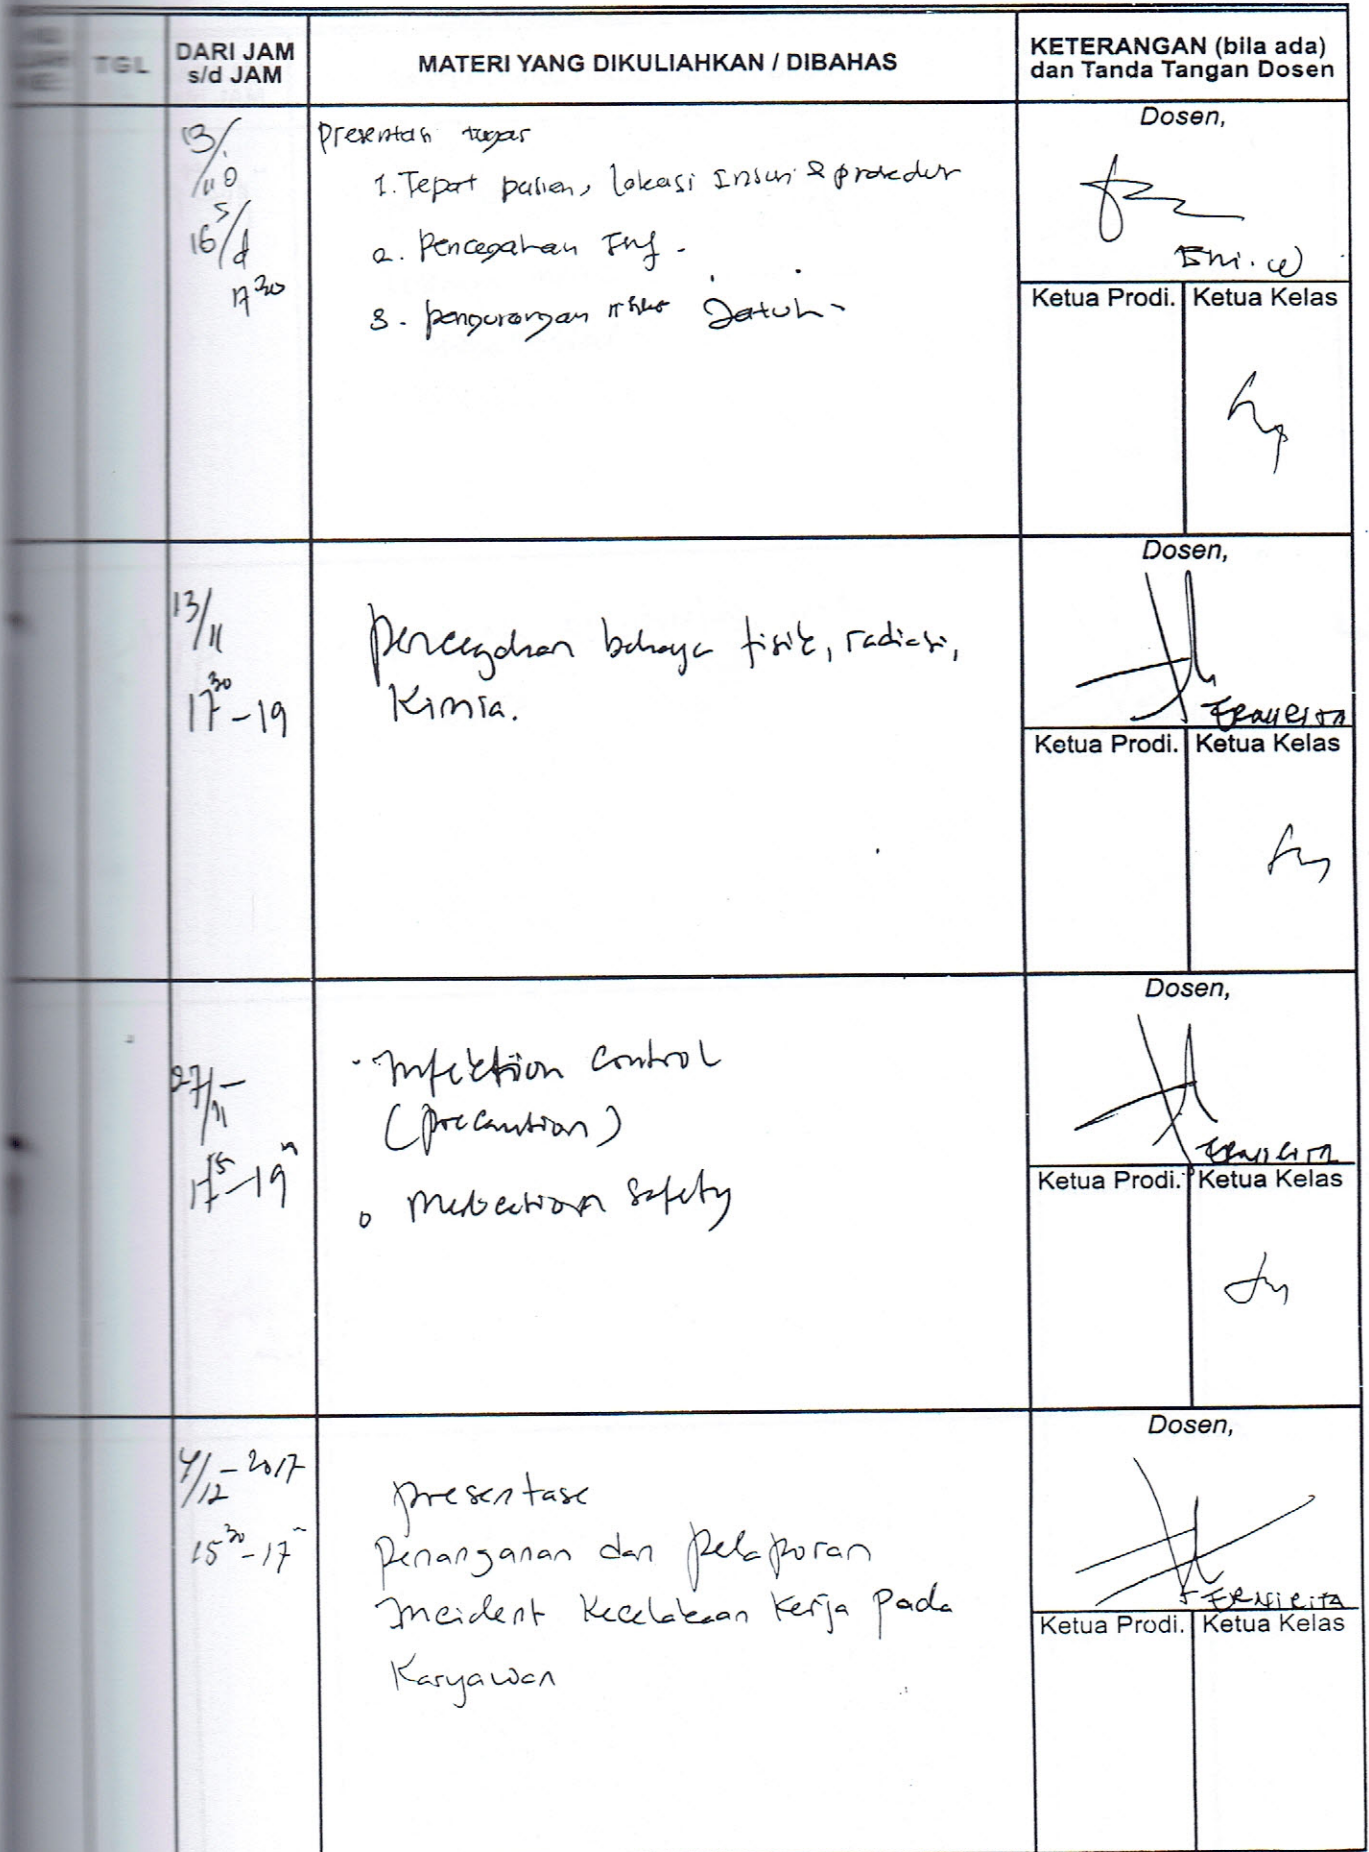 TGL
DARI JAM
s/d JAM
MATERI YANG DIKULIAHKAN / DIBAHAS
KETERANGAN (bila ada)
dan Tanda Tangan Dosen
13/11
16 s/d
17 30
Presentasi tugas
1. Tepat pasien, lokasi Insisi & prosedur
2. Pencegahan Inf.
3. pengurangan risiko Jatuh
Dosen,
Eni. W
Ketua Prodi.
Ketua Kelas
13/11
17 30 - 19
Pencegahan bahaya fisik, radiasi,
Kimia.
Dosen,
Ketua Prodi.
Ketua Kelas
27/11
17 15 - 19
Infektion control
(precaution)
Medication Safety
Dosen,
Ketua Prodi.
Ketua Kelas
4/12 - 2017
15 30 - 17
presentase
Penanganan dan pelaporan
Incident Kecelakaan Kerja pada
Karyawan
Dosen,
Ketua Prodi.
Ketua Kelas